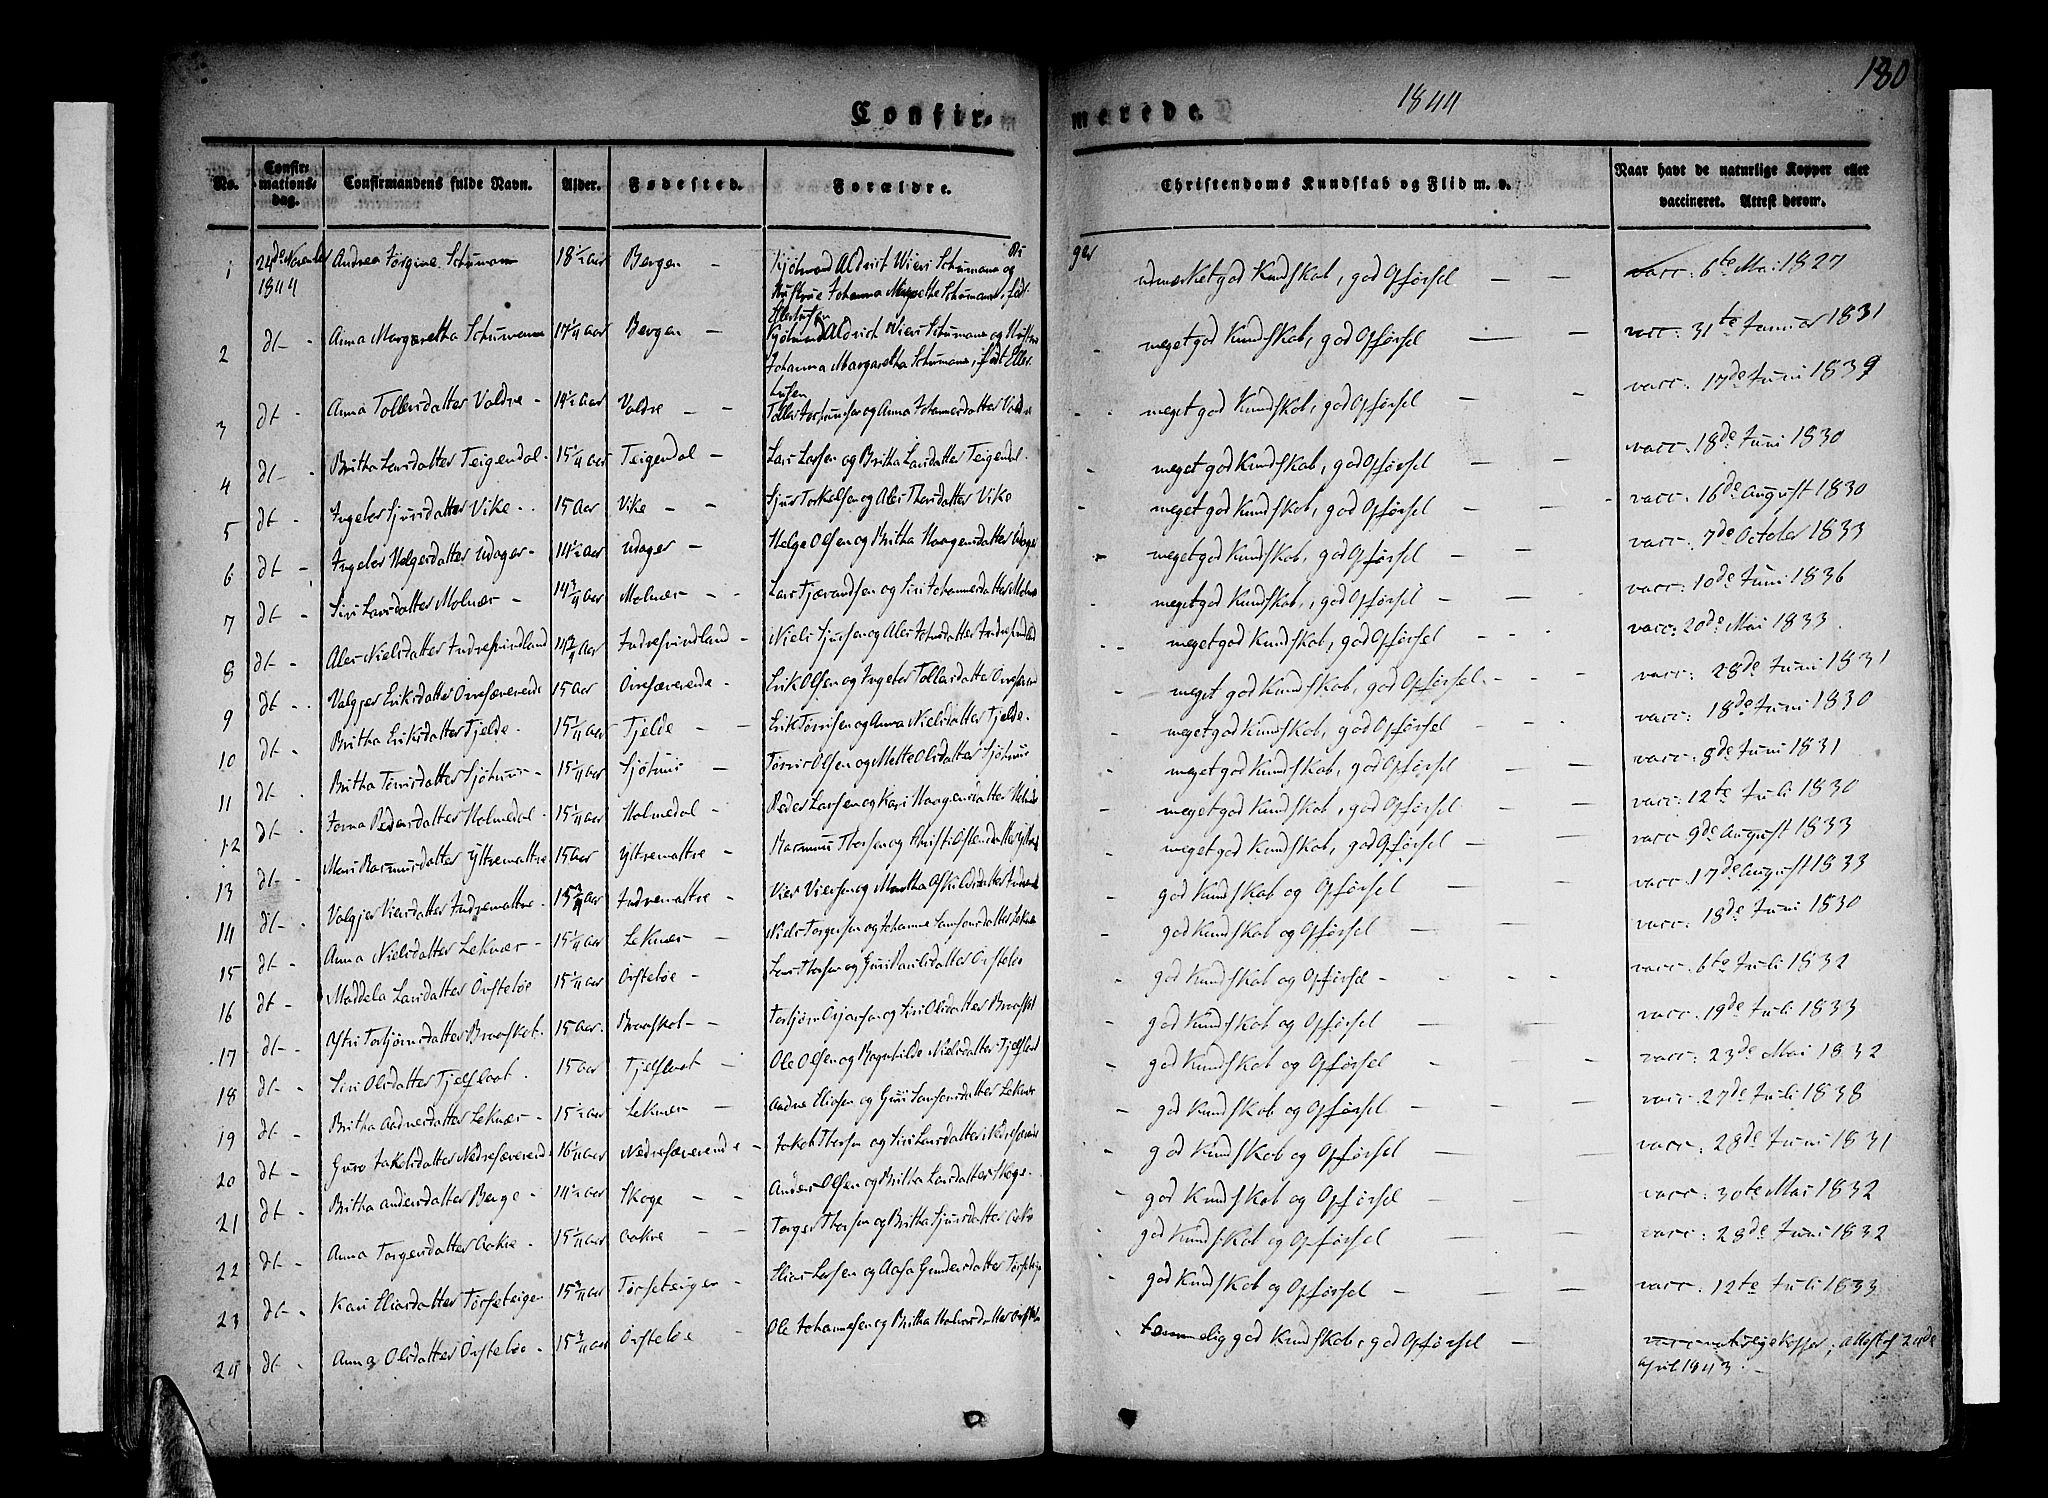 180
1844
Confir- merede.
No. Confirmations- dag. Confirmandens fulde Navn. Alder. Fødested. Forældre. Christendoms Kundskab og Flid m. v. Naar havt de naturlige Kopper eller vaccineret. Attest derom.
1 24de November 1844 Andrea Jörgine Schumann 18½ Aar Bergen - Kjöbmand Aldrict Wieri Schumann og Hustrue Johanna Schumann, født udmærket god Kundskab, god Opførsel - - vacc: 6te Mai 1827
2 dt - Anna Margaretha Schumann 17¼ Aar Bergen - Kjöbmand Aldrict Wieri Schumann og Johanna Margaretha Schumann, født meget god Kundskab, god Opførsel - - vacc: 31te Januar 1831
3 dt - Anna Tollersdatter Valdre - 14½ Aar Valdre - - og Anna Johannesdatter Valdre meget god Kundskab, god Opførsel - - vacc: 17de Juni 1839
4 dt - Britha Larsdatter Teigendal - 15¼ Aar Teigendal - Lars Larsen og Britha Larsdatter Teigendal. meget god Kundskab, god Opførsel - - vacc. 18de Juni 1830
5 dt - Ingebor Sjursdatter Vike - 15 Aar Vike - - Sjur Torkelsen og Ales Thorsdatter Vike meget god Kundskab, god Opførsel - - vacc: 16de August 1830
6 dt - Ingebor Helgesdatter Udager - 14½ Aar Udager - Helge Olsen og Britha Haagensdatter Udager meget god Kundskab, god Opførsel - - vacc: 7de October 1833
7 dt - Siri Larsdatter Molnær - 14¾ Aar Molnær - - Lars Tjærandsen og Siri Johannesdatter Molnær meget god Kundskab, god Opførsel - - vacc: 10de Juni 1836
8 dt - Ales Nielsdatter Indresvindland 14¾ Aar Indresvindland - Niels Sjursen og Ales meget god Kundskab, god Opførsel - - vacc: 20de Mai 1833
9 dt - Valgjer Eriksdatter Övresæverende 15 Aar Övresæverende - Erik Olsen og Ingebor Tollersdatter meget god Kundskab, god Opførsel - - vacc: 28de Juni 1831
10 dt - Britha Eriksdatter Tjelde. 15¼ Aar Tjelde - - Erik og Anna Nielsdatter Tjelde. meget god Kundskab, god Opførsel - - vacc: 18de Juni 1830
11 dt - Britha 15¼ Aar - Olsen og Mette Olsdatter meget god Kundskab, god Opførsel - - vacc: 8de Juni 1831
12 dt - Pedersdatter Holmedal - 15¼ Aar Holmedal - Peder Larsen og Kari Haagensdatter meget god Kundskab, god Opførsel - - vacc: 12te Juli 1830
13 dt - Mari Rasmusdatter Yttremattre 15 Aar Yttrematre - Rasmus Thorsen og meget god Kundskab, god Opførsel - - vacc 9de August 1833
14 dt - Valgjer Viersdatter Indrematre - 15¾ Aar Indrematre - Vier Viersen og Martha god Kundskab og Opførsel - - vacc: 17de August 1833
15 dt - Anna Nielsdatter Leknær - 15¼ Aar Leknær - Niels Torgersen og Johanne Samsonsdatter Leknær god Kundskab og Opførsel - - vacc: 18de Juni 1830
16 dt - Maddela Larsdatter Örsteløe 15¼ Aar Örsteløe - Lars Thorsen og Guri Paulsdatter Örsteløe god Kundskab og Opførsel - - vacc. 6te Juli 1832
17 dt - Torbjörnsdatter 15 Aar. - - Torbjörn og Siri Olsdatter god Kundskab og Opførsel - - vacc: 19de Juli 1833
18 dt - Siri Olsdatter Tjelfloat. 15 Aar Tjelfloat - Ole Olsen og Bagnhilde Nielsdatter god Kundskab og Opførsel - - vacc: 23de Mai 1832
19 dt - Britha Aadnesdatter Leknær - 15½ Aar Leknær - Aadne Eliasen og Guri Larsensdatter Leknær god Kundskab og Opførsel - - vacc: 27de Juli 1838
20 dt - Guro Jakobsdatter Nedresæverende 16¼ Aar Nedresæverende - Jakob Thorsen og Siri Larsdatter god Kundskab og Opførsel - - vacc: 28de Juni 1831
21 dt - Britha Andersdatter Berge - 14½ Aar Skoge - - Anders Olsen og Britha Larsdatter Skoge - god Kundskab og Opførsel - - vacc: 30te Mai 1832
22 dt - Anna Torgersdatter Aakre - 15¼ Aar Aakre - - Torger Thorsen og Britha Sjursdatter Aakre god Kundskab og Opførsel - - vacc: 28de Juni 1832
23 dt - Kari Eliasdatter Torseteigen 15¾ Aar Torseteigen - Elias Larsen og Aasa Gundersdatter god Kundskab og Opførsel - - vacc: 12te Juli 1833
24 dt - Anna Olsdatter Örsteløe - 15¾ Aar Örsteløe - Ole Johannesen og Britha Halvorsdatter temmelig god Kundskab, god Opførsel - naturlige Kopper, attest af 24de April 1843.